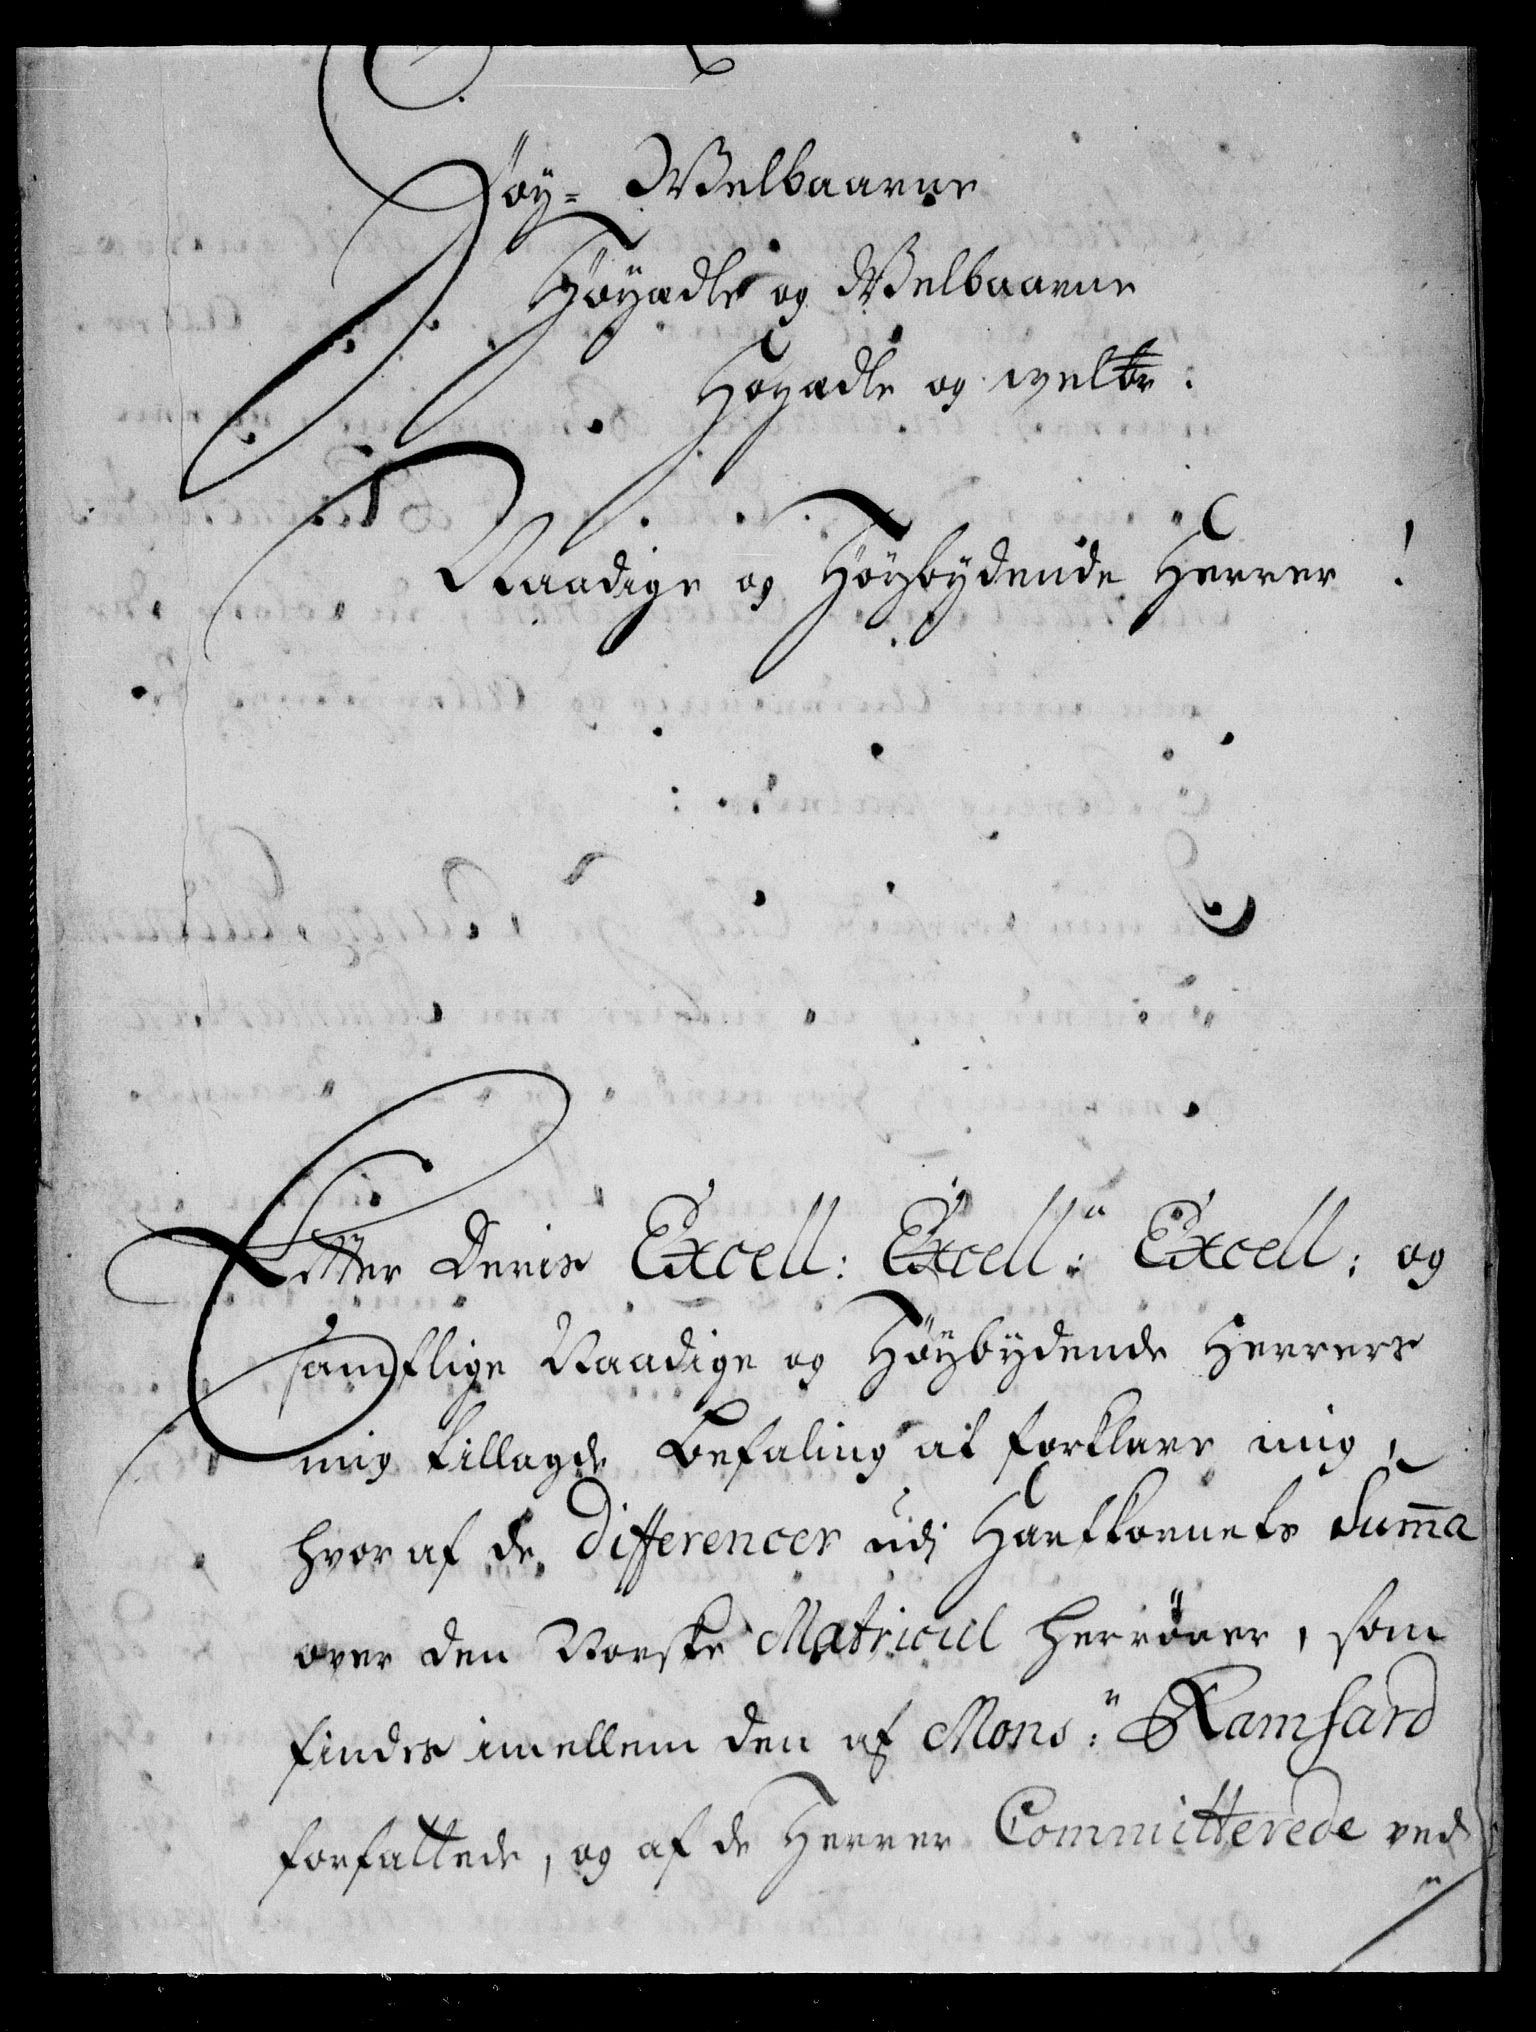 Høy- Welbaarne
Høyædle og Welbaarne
Høyædle og velbr:
Naadige og Høybydende Herrer!
Effter Deris Excell: Excell: Excell: og
samptlige Naadige og Høybydende Herrers
mig tillagde Befaling at forklare mig,
hvor af de Differencer udj Hartkornets Suma
over den Norske Matricul herrører, som
findes imellem den af Mons:r Ramshard
forfattede, og af de Herrer Committerede ved